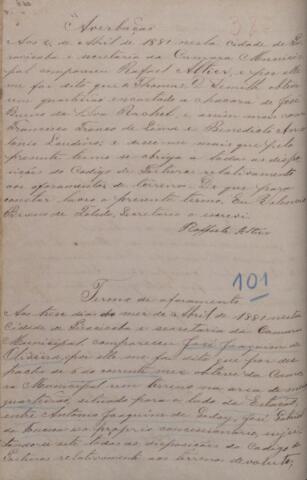 Averbação
Aos 2 de Abril de 1881 nesta cidade de Pi-
racicaba e secretaria da Camara Munici-
pal compareceu Rafael Altier, e por elle
me foi dito que a Thomaz D. Smith
um quarteirão encostado a chacara de José
Bueno da Silva
Francisco Franco de Lima e Benedicto An-
tonio e disse mais que pelo
presente termo se obriga a todas as dispo-
sições do Codigo de Posturas relativamente
aos aforamentos de terreno. De que para
constar lavro o presente termo. Eu
Bueno de Toledo, Secretario o escrevi.
Raffaele
101
Termo de aforamento
Aos tres dias do mez de Abril de 1881 nesta
Cidade de Piracicaba e secretaria da Camara
Municipal compareceu José Joaquim de
Oliveira, por elle me foi dito que por des-
pacho de 6 do corrente mez obteve da Cama-
ra Municipal um terreno na area de um
quarteirão, situado para o lado da
entre Antonio Joaquim de José
do e o proprio concessionario, sujei-
tando-se este todas as disposições do Codigo de
Posturas relativamente aos terrenos devolutos;